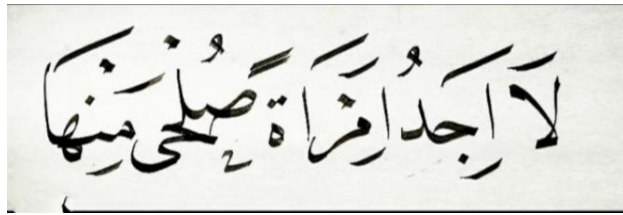 لَا اَجِدُ اِمْرَاَةً صُلْحَى مِنْهَا